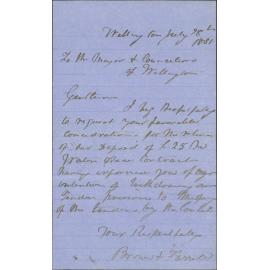 Wellington July 28th
1881
To the Mayor & Councillors
of Wellington
Gentlemen
I beg Respectfully
to request your favorable
consideration for the return
of our Deposit of £25 
 Contract
having informed you of our
intention of withdrawing our
Tender previous to 
of the tenders by the 
Your Respectfully
Brown &